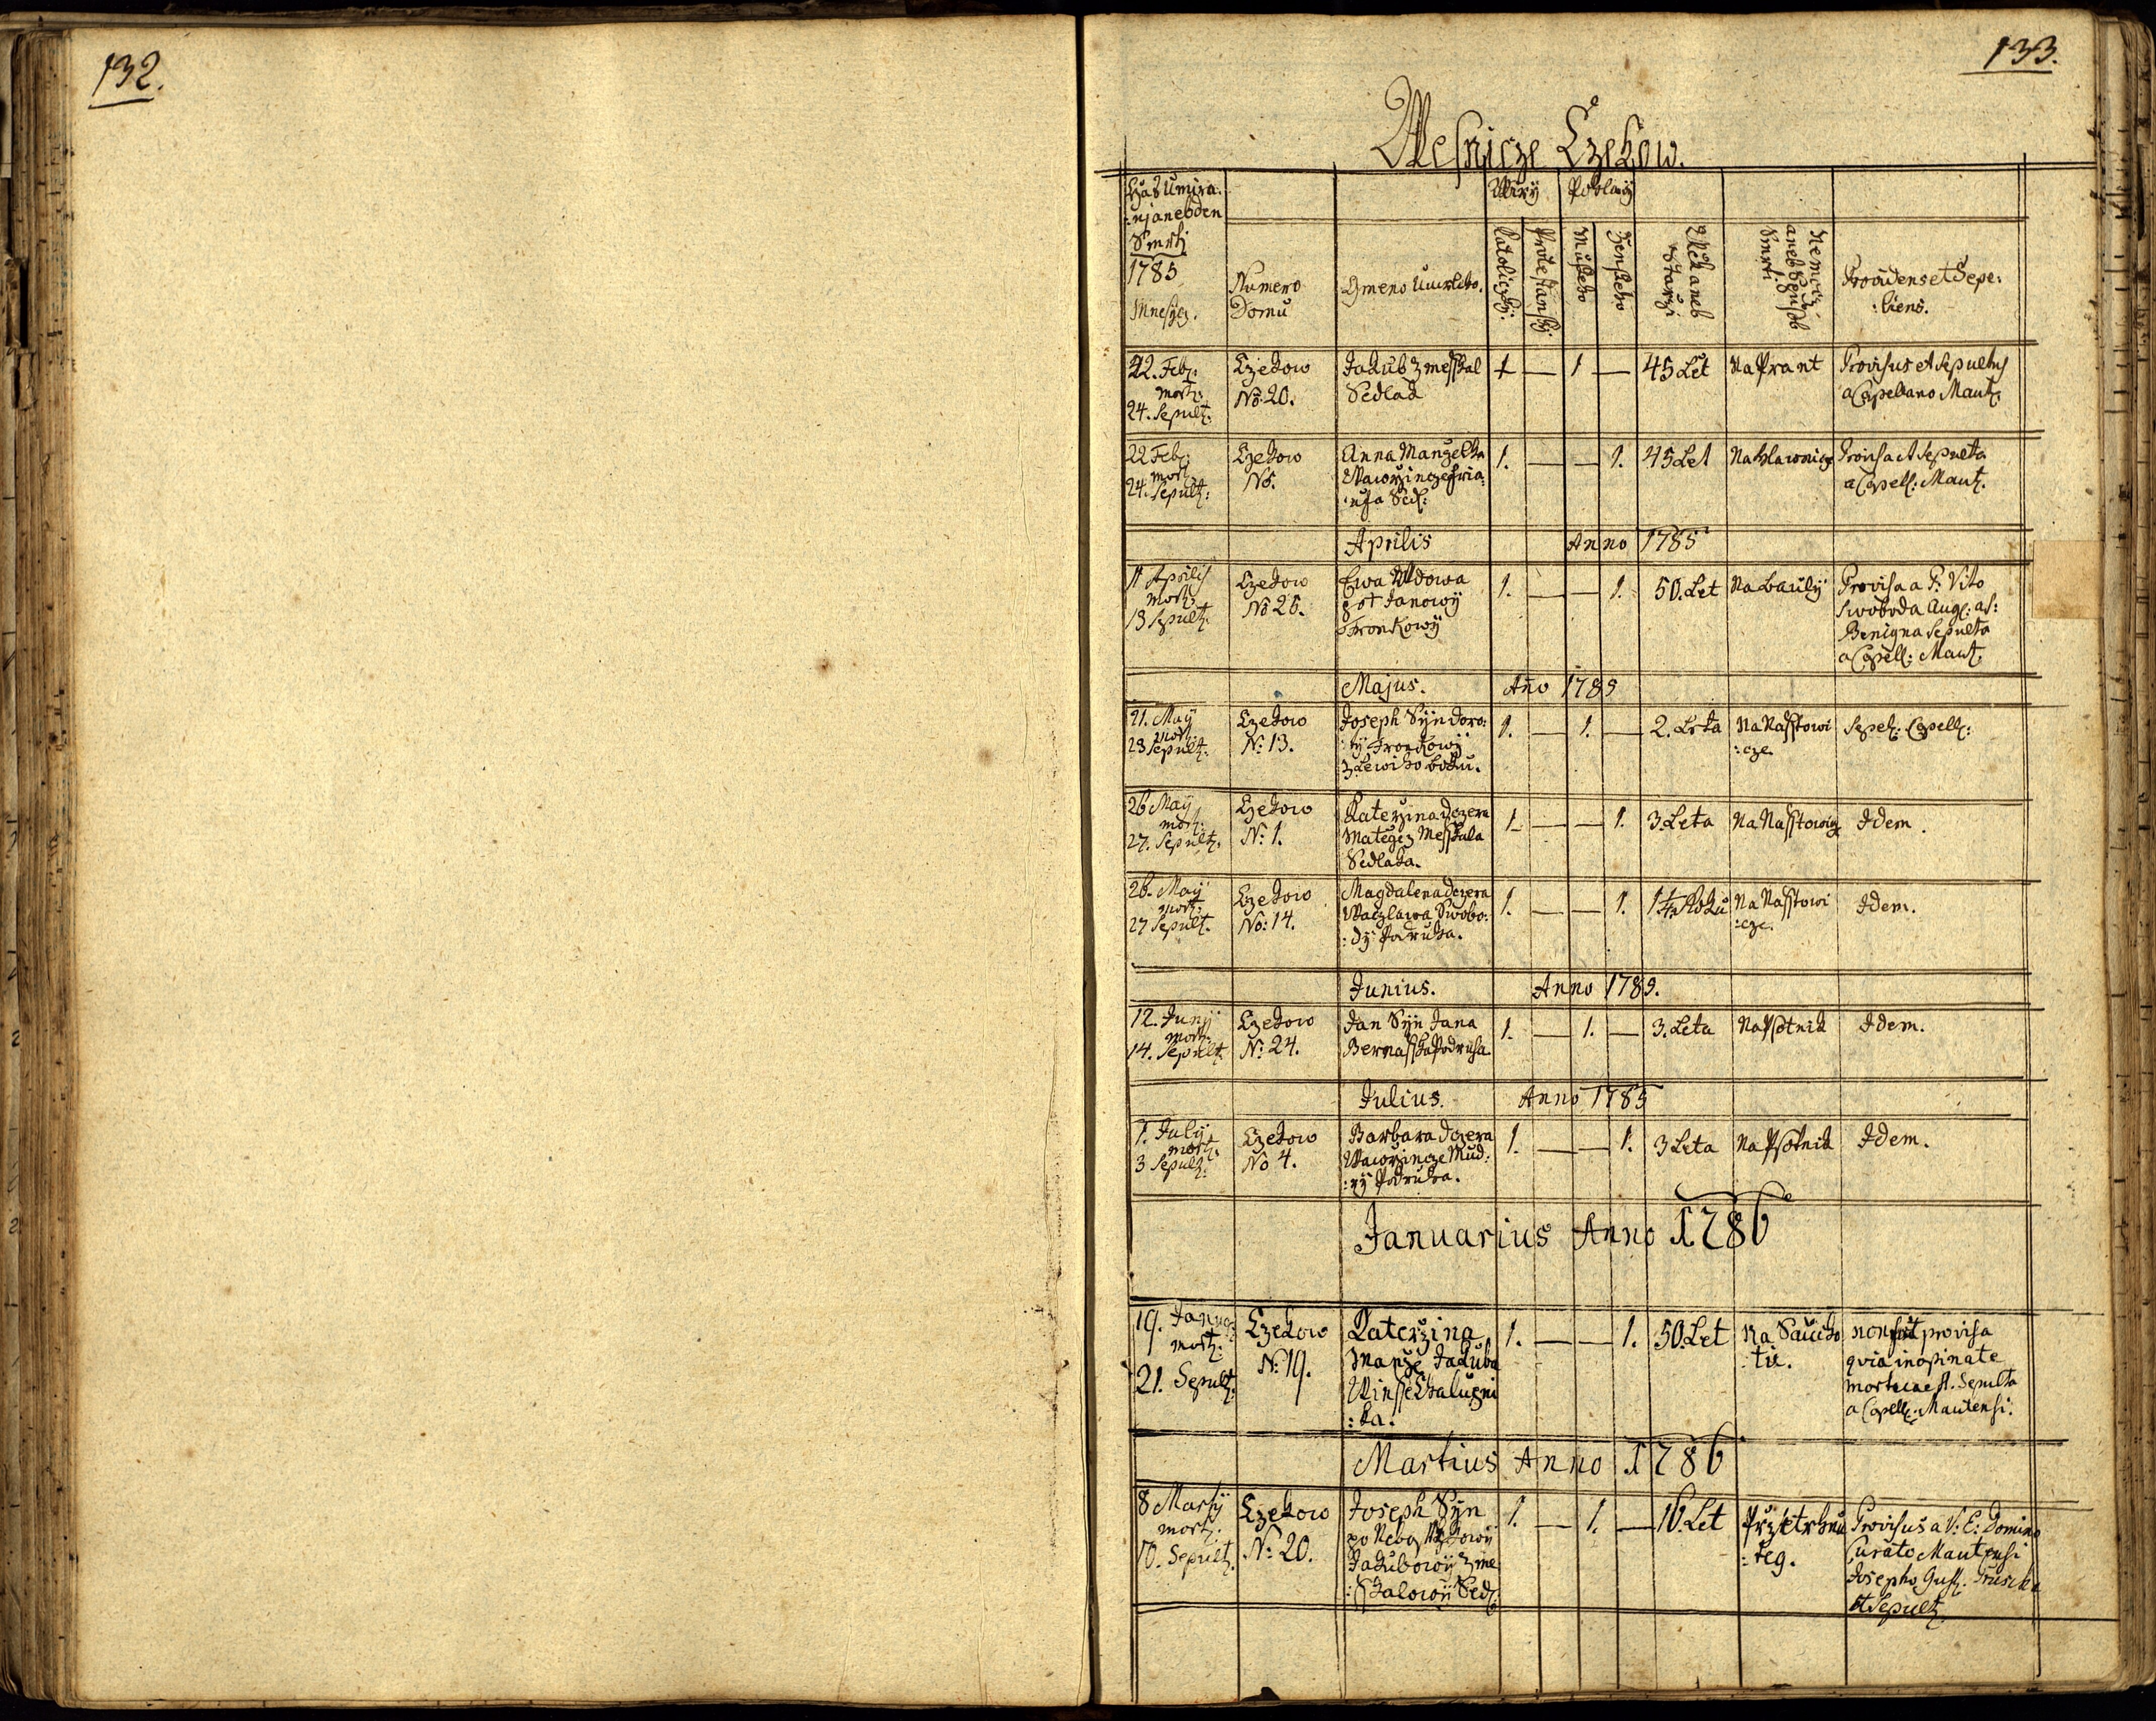 132.
133.
Wesnicze Czekow.
Czas Umira:
:nj aneb den
Smrti
1785
Mnesycz.
Numero
Domu
Gmeno Umrleho.
Wiry
Katoliczky:
Protestansky:
Pohlawy
Muskeho
Zenskeho
Wiek aneb
Starzi
Nemocz
aneb Spusob
Smrti:
Providens et Sepe:
:liens.
22. Feb:
mort:
24. Sepult:
Czekow
No: 20.
Jakub Zmesskal
Sedlak
1 — 1 —
45 Let
Na Prant
Provisus et Sepultus
a Capellano Maut:
22 Feb:
mort:
24. Sepult:
Czekow
No:
Anna Manzelka
Wawrzincze
Sed:
1. — — 1.
45 Let
Na hlawnicz
Provisa et Sepulta
a Capell: Maut:
Aprilis Anno 1785
11 Aprilis
mort:
13 Sepult:
Czekow
No 26.
Ewa Wdowa
pot Janowy
Fronkowy
1. — — 1.
50. Let
Na bauly
Provisa a P: Vito
Swoboda Aug: as:
Benigna Sepulta
a Capell: Maut:
Majus. Año 1785
21. May
mort:
23 Sepult:
Czekow
N: 13.
Joseph Syn Doro:
:ty Fronkowy
z Lewiho boku.
1. — 1. —
2. Leta
Na Nasstowi
:cze.
Sepel: Capell:
26 May
mort:
27. Sepult:
Czekow
N: 1.
Katerzina dczera
Mategez Messkala
Sedlaka.
1. — — 1.
3. Leta
Na Nasstowicz
Idem.
26. May
mort:
27 Sepult:
Czekow
No: 14.
Magdalena dczera
Waczlawa Swobo:
:dy Podruha.
1. — — 1.
1 1/2 Roku
Na Nasstowi
:cze.
Idem.
Junius. Anno 1785.
12. Junÿ
mort:
14. Sepult:
Czekow
N: 24.
Jan Syn Jana
Bernasska Podruha
1. — 1. —
3. Leta
Na Psotnik
Idem.
Julius. Anno 1785
1. July
mort:
3 Sepult:
Czekow
No 4.
Barbara dczera
Wawrzincze Mud:
:ry Podruha.
1. — — 1.
3 Leta
Na Psotnik
Idem.
Januarius Anno 1786
19. Janua:
mort:
21. Sepult:
Czekow
N: 19.
Katerzina
Manze Jakuba
Winsse Chalupni
:ka.
1. — — 1.
50. Let
Na Saucho
:tie.
non fuit provisa
quia inopinate
mortua est. Sepulta
a Capell: Mautensi.
Martius Anno 1786
8 Martÿ
mort:
10. Sepult:
Czekow
N: 20.
Joseph Syn
po Neb:
Jakubowy Zme
:sskalowy Sed:
1. — 1. —
16. Let
Przetrhnu
:teg.
Provisus a V: E: Domino
Curato Mautensi
Josepho
et Sepult: